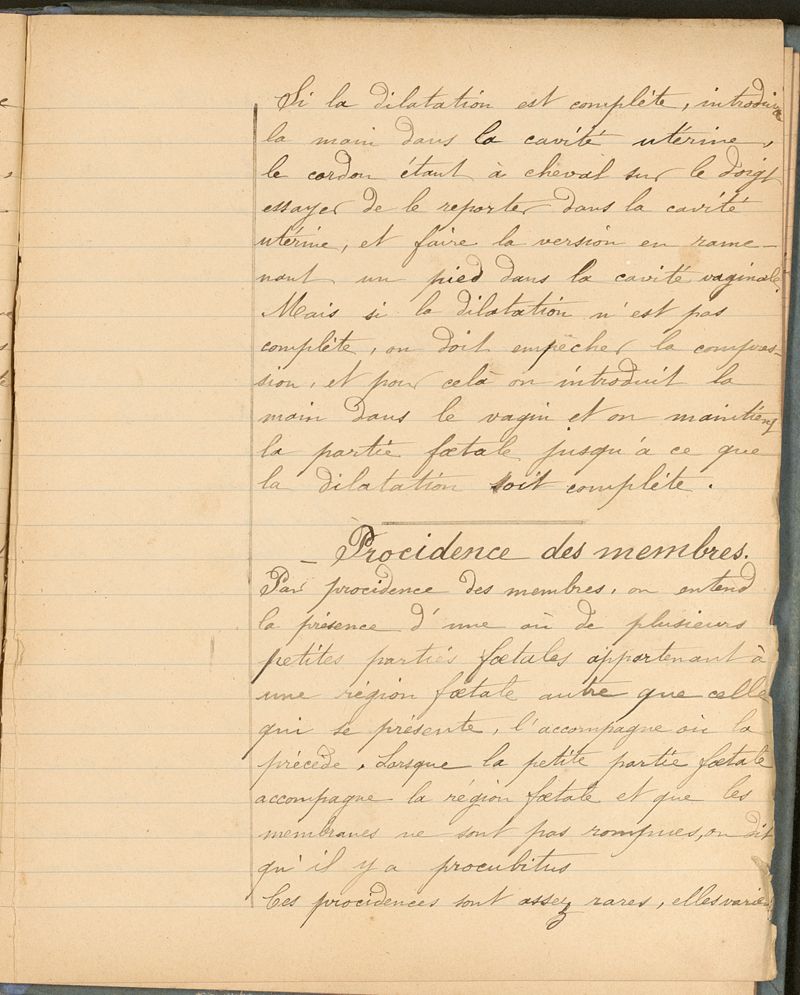 Si la dilatation est complète, introduire
la main dans la cavité utérine,
le cordon étant à cheval sur le doigt
essayer de le reporter dans la cavité
utérine, et faire la version en rame-
nant un pied dans la cavité vaginale.
Mais si la dilatation n'est pas
complète, on doit empêcher la compres-
sion, et pour celà on introduit la
main dans le vagin et on maintient
la partie fœtale jusqu'à ce que
la dilatation soit complète.
- Procidence des membres.
Par procidence des membres, on entend
la présence d'une où de plusieurs
petites parties fœtales appartenant à
une région fœtale autre que celle
qui se présente, l'accompagne où la
précède. Lorsque la petite partie fœtale
accompagne la région fœtale et que les
membranes ne sont pas rompues, on dit
qu'il y a procubitus
Ces procidences sont assez rares, elles varie